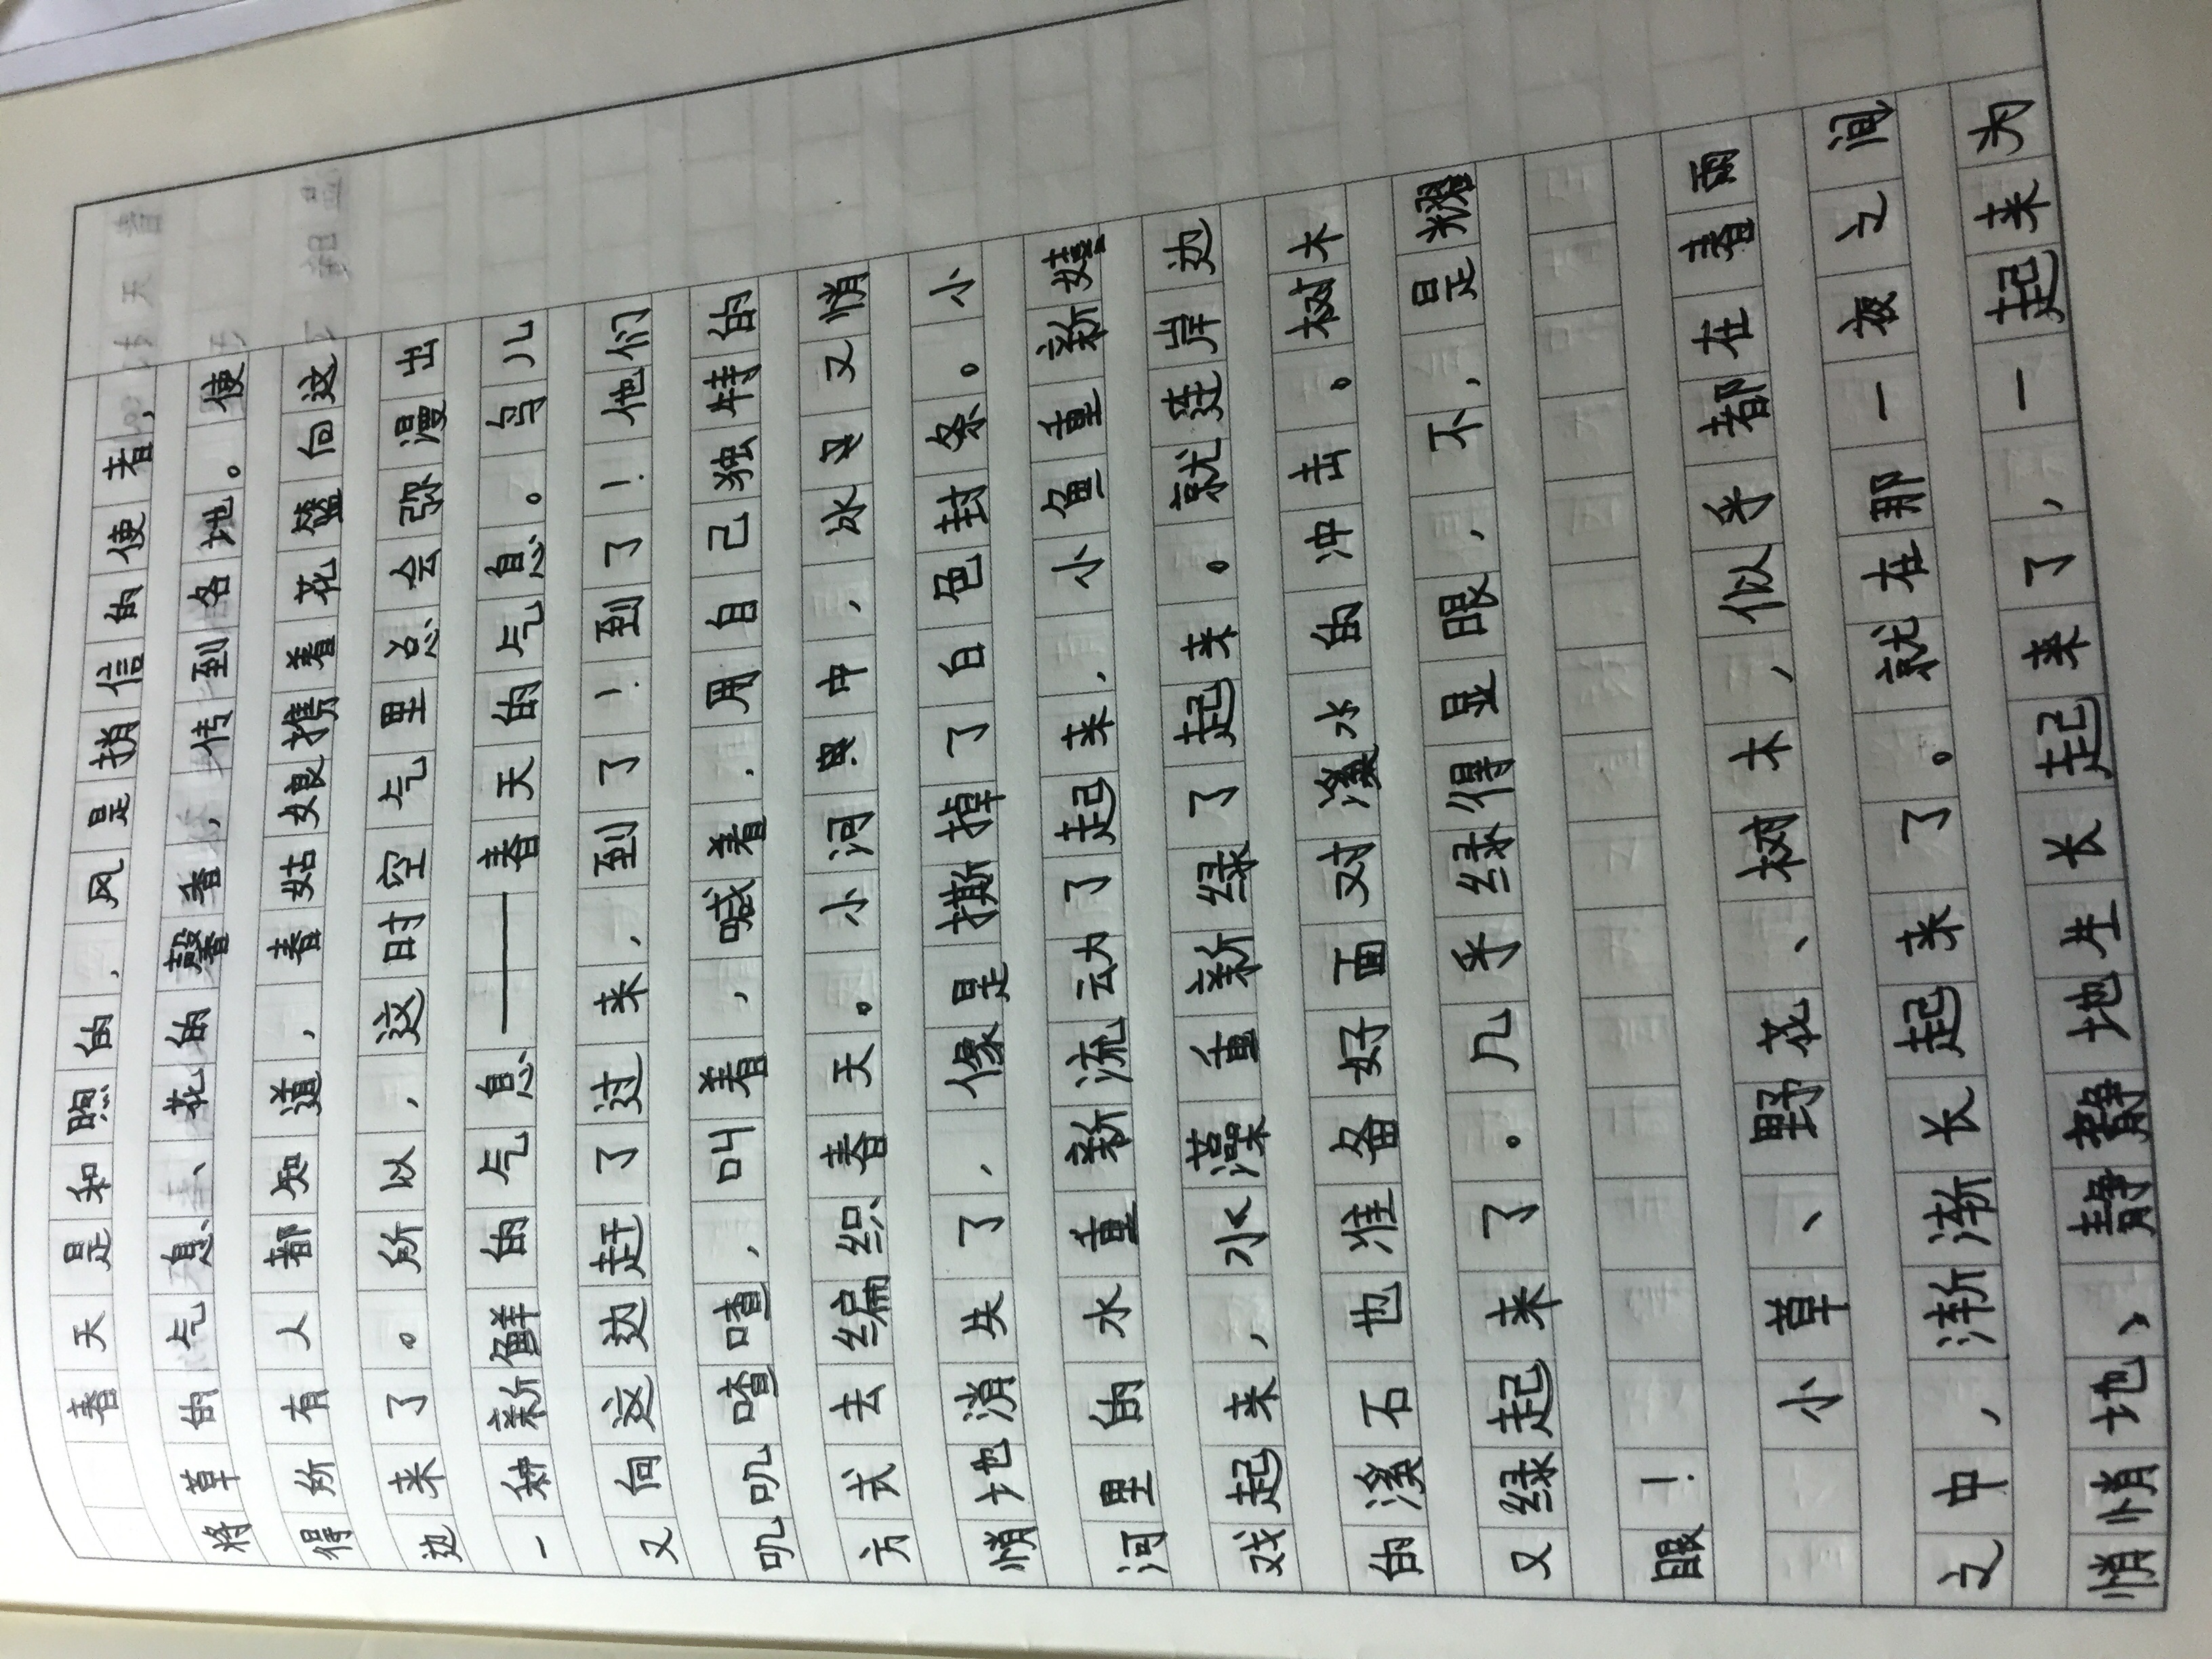 春天是和煦的，风是捎信的使者，
将草的气息、花的馨香，传到各地。使
得所有人都知道，春姑娘携着花篮向这
边来了。所以，这时空气里总会弥漫出
一种新鲜的气息——春天的气息。鸟儿
又向这边赶了过来，到了！到了！他们
叽叽喳喳，叫着，喊着，用自己独特的
方式去编织春天。小河中，冰又悄
悄地消失了，像是撕掉了白色封条。小
河里的水重新流动了起来，小鱼重新嬉
戏起来，水藻重新绿了起来。就连岸边
的溪石也准备好面对溪水的冲击。树木
又绿起来了。几乎绿得显眼，不，是耀
眼！
小草、野花、树木，似乎都在春雨
之中，渐渐长起来了。就在那一夜之间
悄悄地、静静地生长起来了，一起来为